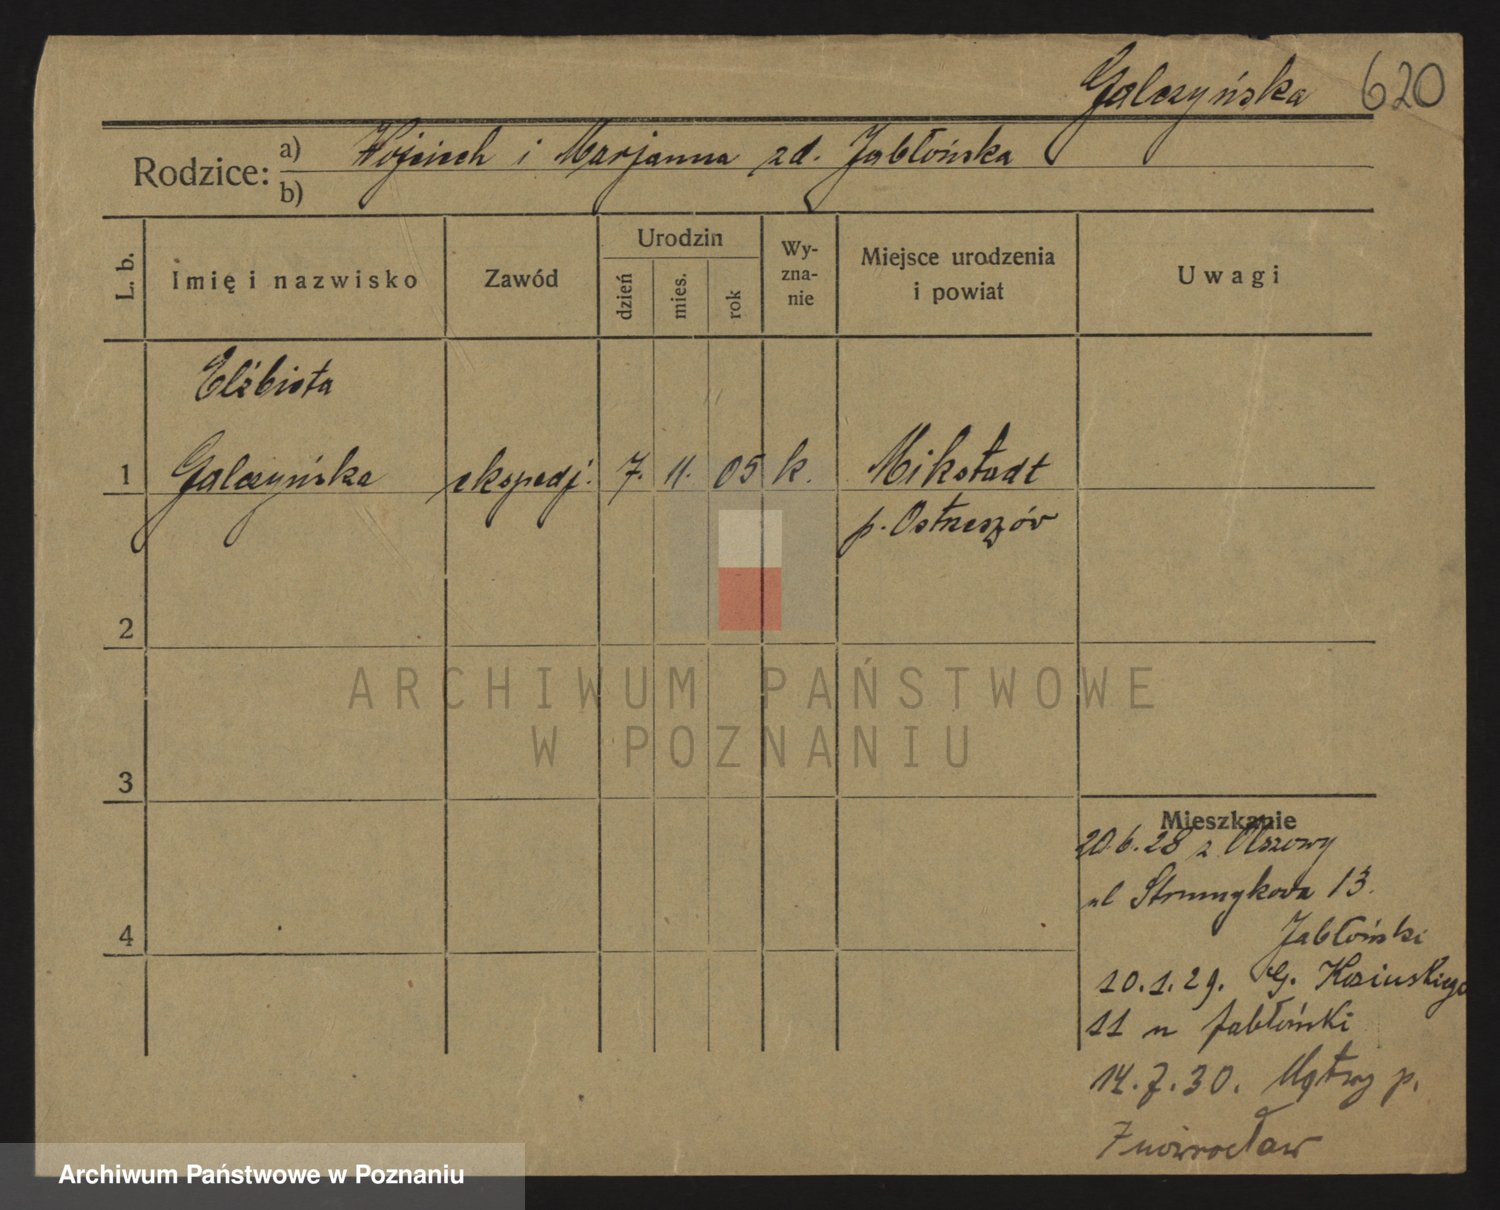 Galczyńska 620
Rodzice: a) Wojciech i Marjanna zd. Jabłońska
b)
L. b. Imię i nazwisko Zawód Urodzin dzień mies. rok Wy-zna-nie Miejsce urodzenia i powiat Uwagi
Elżbieta
1 Galczyńska ekspedj. 7. 11. 05 k. Mikstadt
p. Ostrzeszów
2
ARCHIWUM PAŃSTWOWE
W POZNANIU
3
Mieszkanie
20.6.28 z Olszowy
ul Strumykowa 13.
4
Jabłoński
10.1.29. G.
11 u Jabłoński
14.7.30. Mątwy p.
Inowrocław
Archiwum Państwowe w Poznaniu